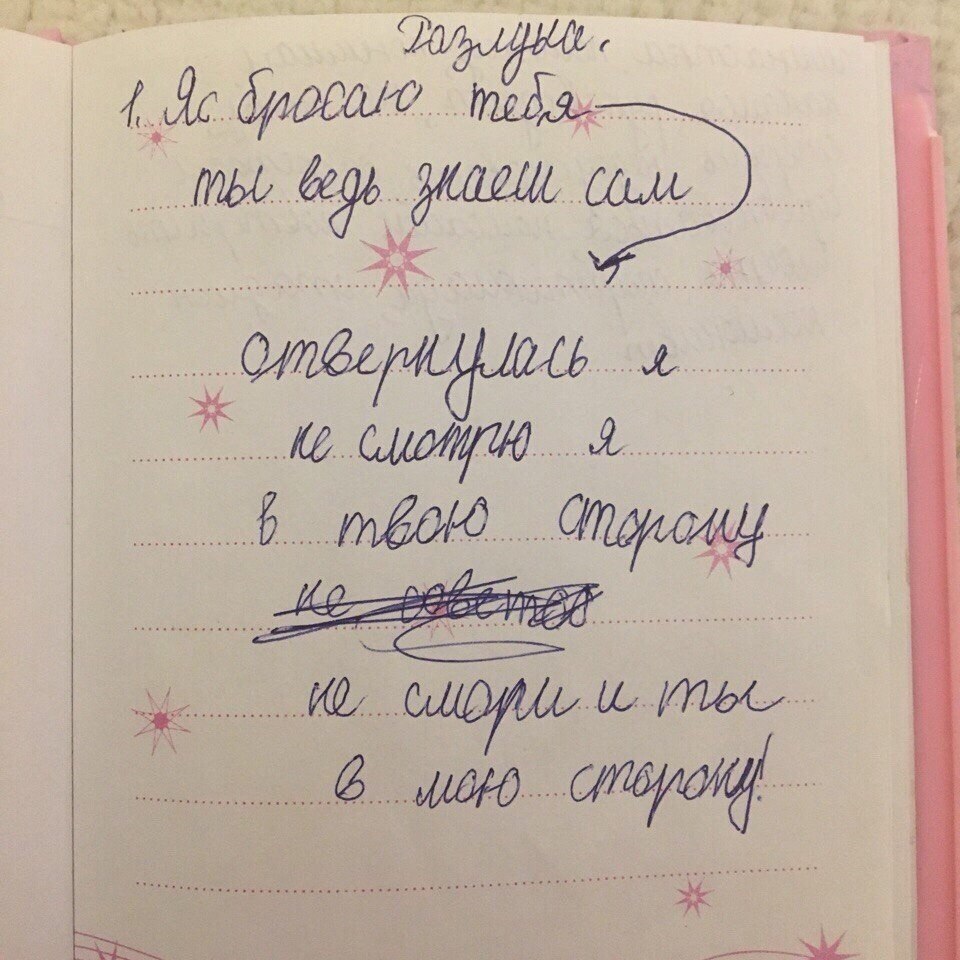 Разлука.
1. Я бросаю тебя
ты ведь знаеш сам
отвернулась я
не смотрю я
в твою сторону
не
не смори и ты
в мою сторону!